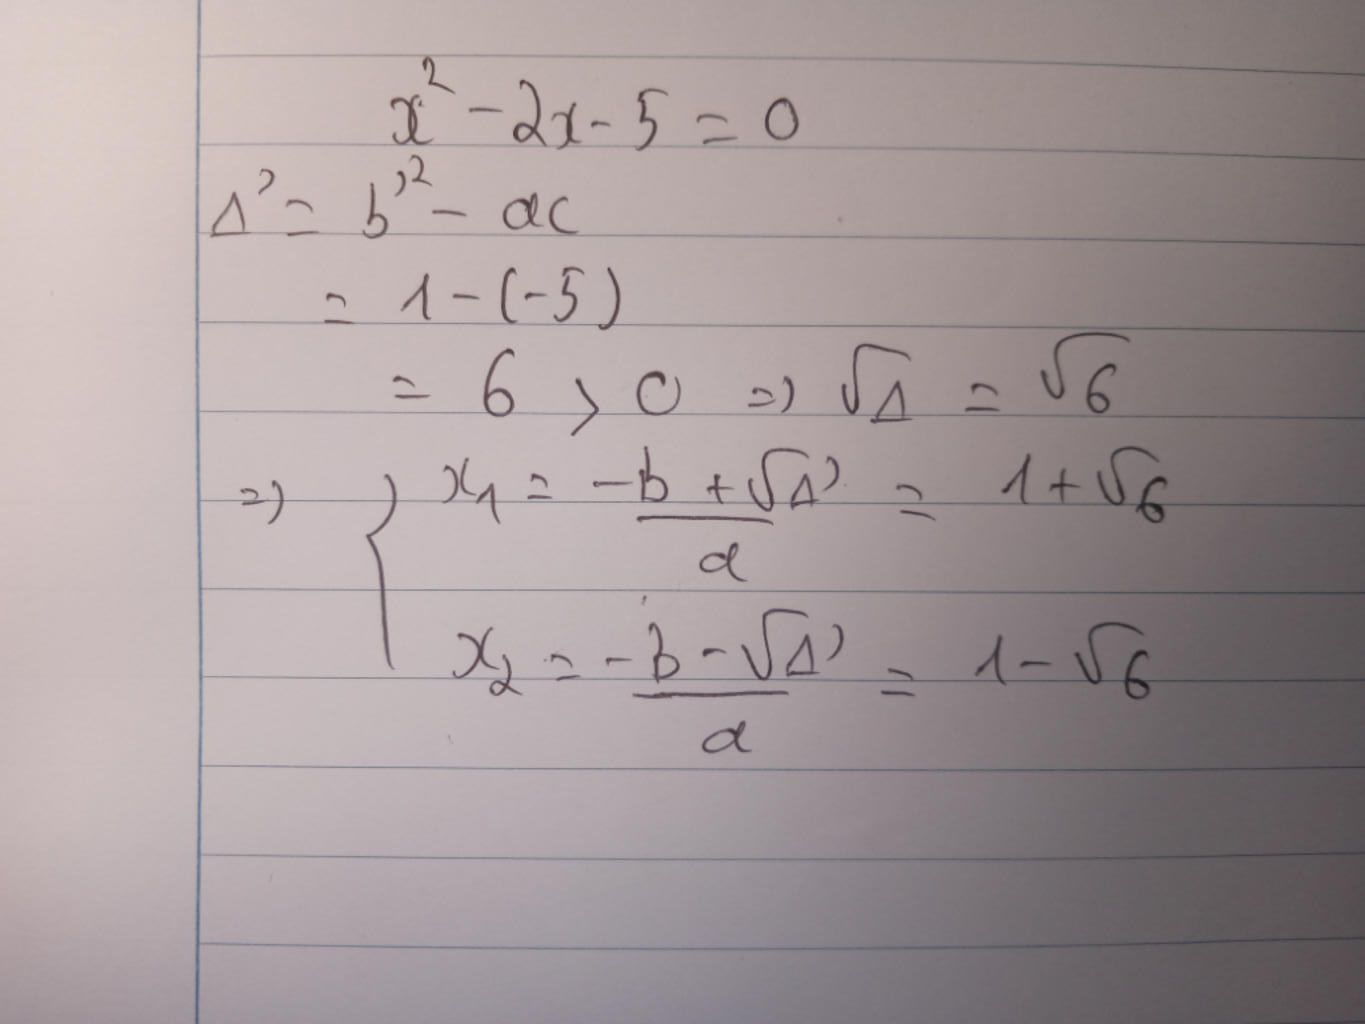 x² - 2x - 5 = 0
Δ' = b'² - ac
= 1 - (-5)
= 6 > 0 => √Δ = √6
=> { x₁ = -b + √Δ' / a = 1 + √6
x₂ = -b - √Δ' / a = 1 - √6